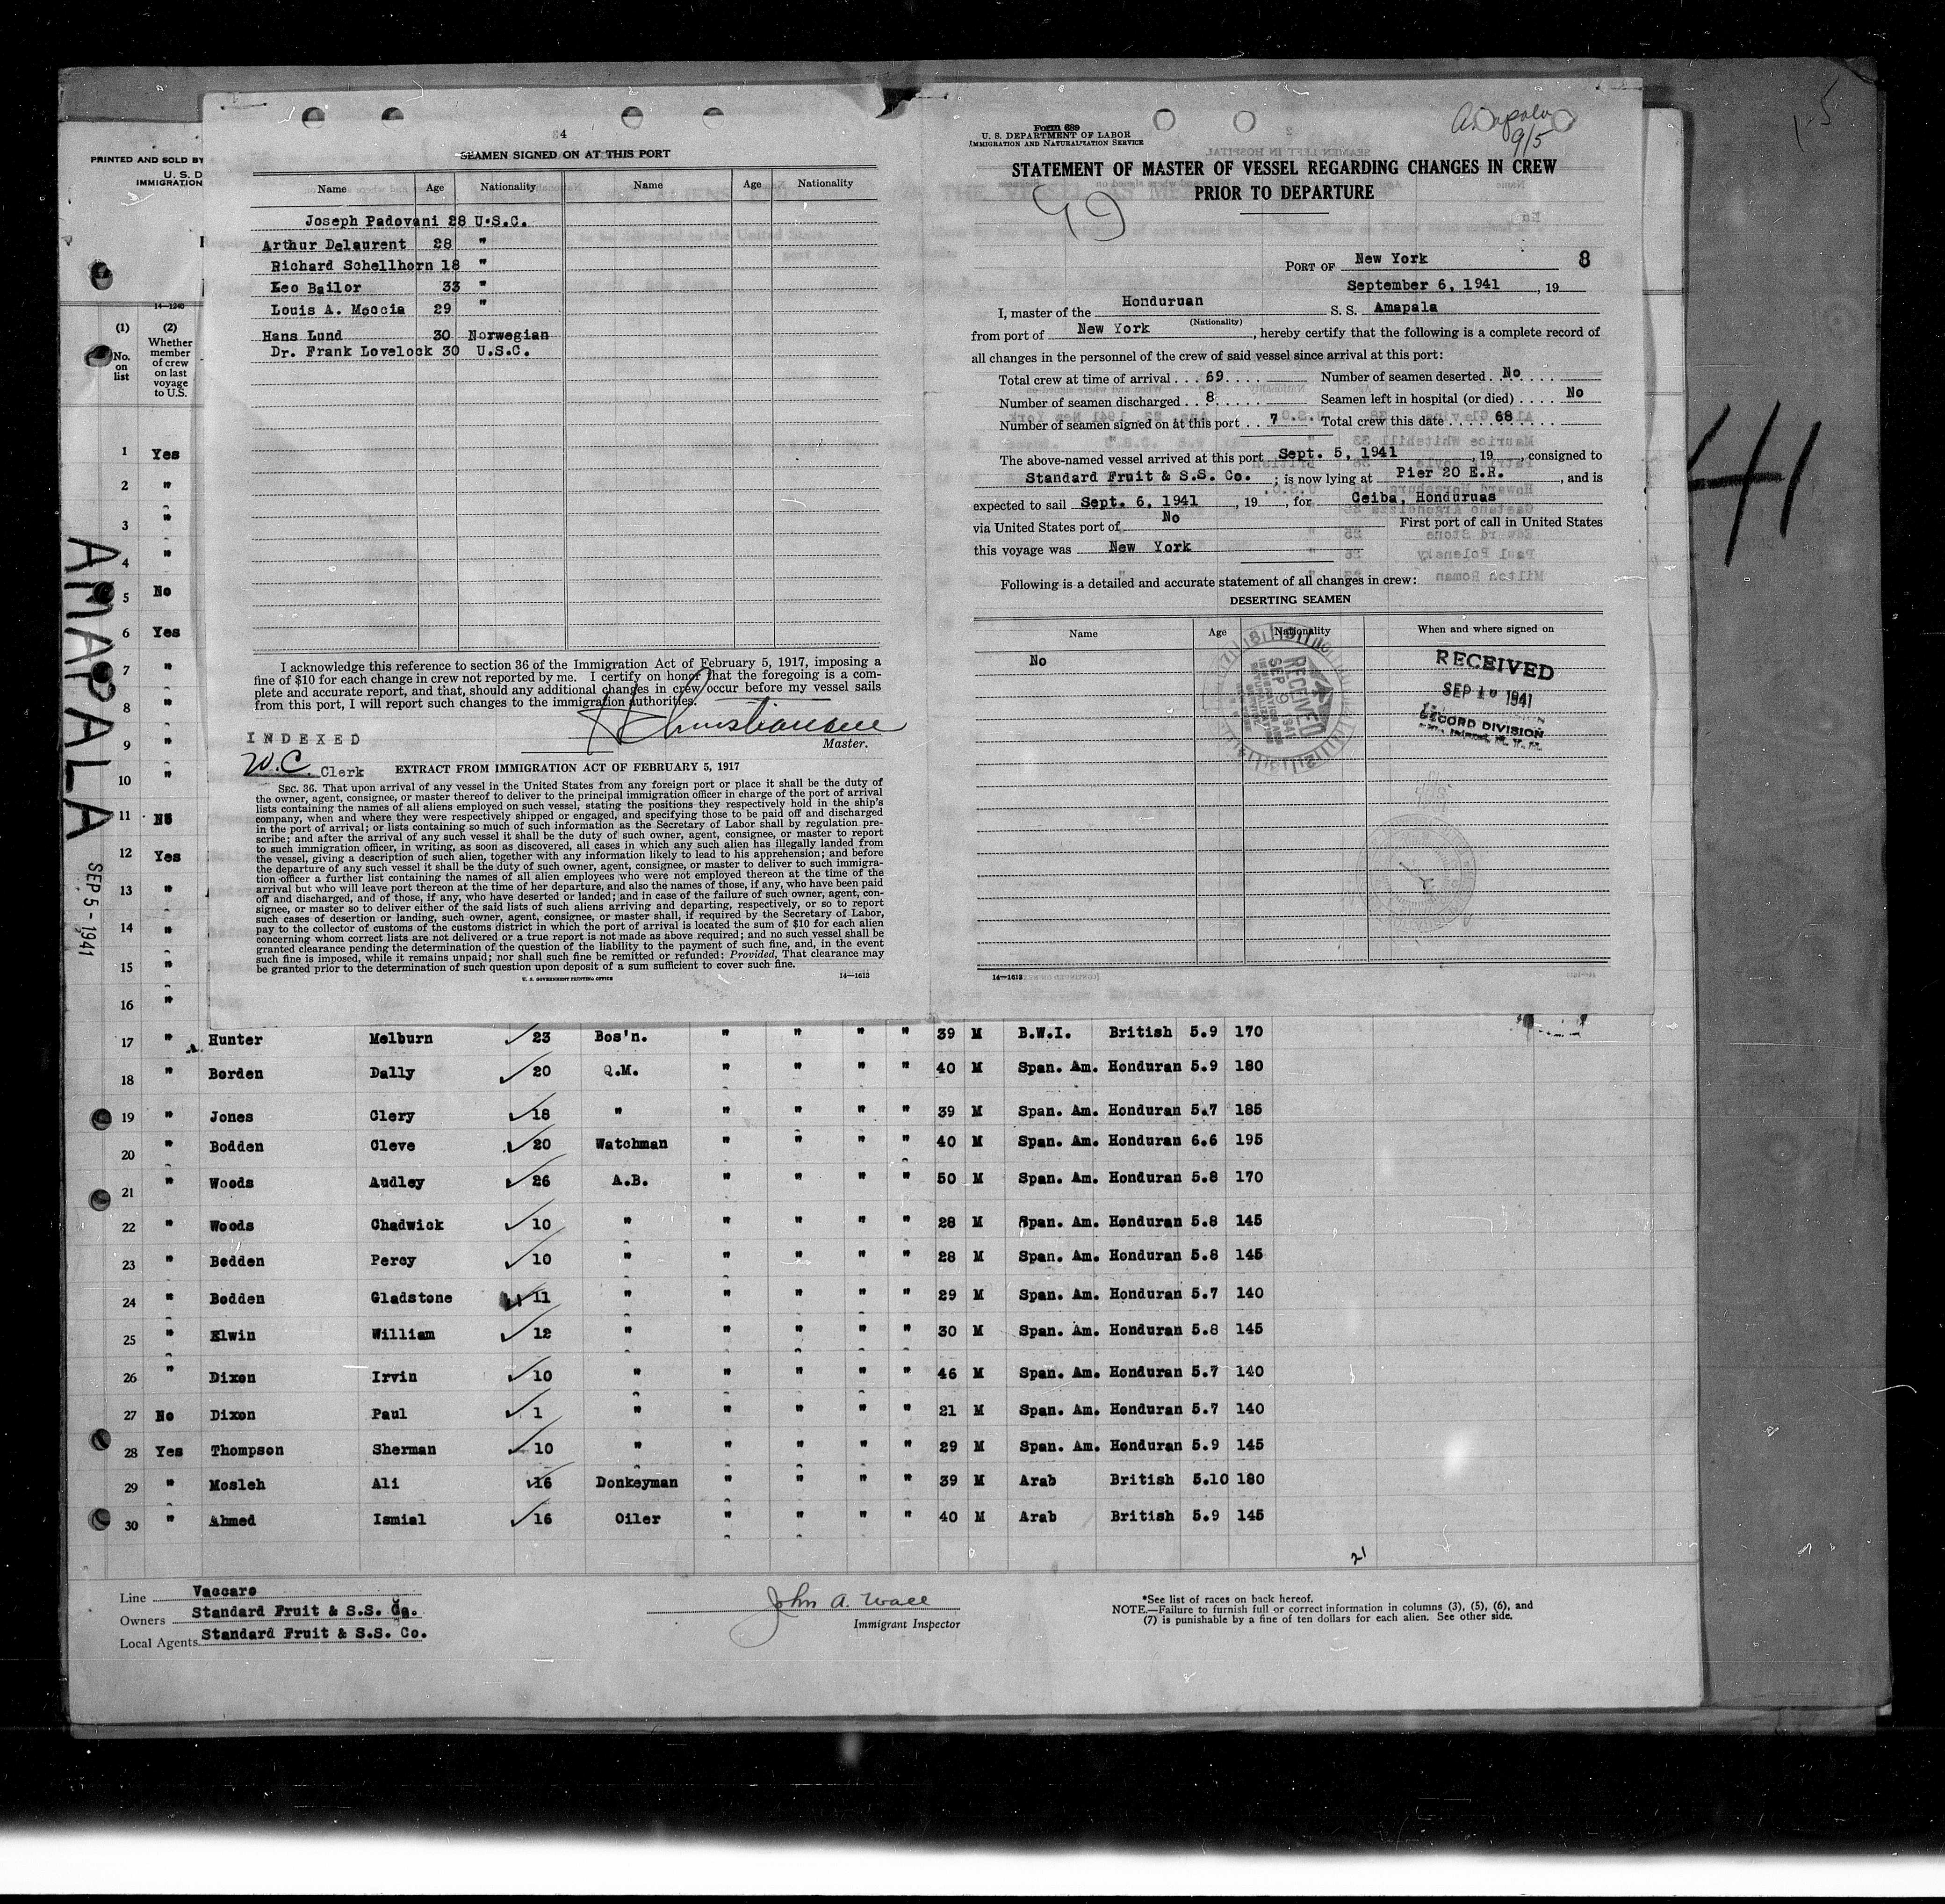 4
SEAMEN SIGNED ON AT THIS PORT
Name Age Nationality Name Age Nationality
Joseph Padovani 28 U.S.C.
Arthur Delaurent 28 "
Richard Schellhorn 18 "
Leo Bailor 33 "
Louis A. Moccia 29 "
Hans Lund 30 Norwegian
Dr. Frank Lovelock 30 U.S.C.
I acknowledge this reference to section 36 of the Immigration Act of February 5, 1917, imposing a
fine of $10 for each change in crew not reported by me. I certify on honor that the foregoing is a com-
plete and accurate report, and that, should any additional changes in crew occur before my vessel sails
from this port, I will report such changes to the immigration authorities.
Master.
INDEXED
W.C. Clerk
EXTRACT FROM IMMIGRATION ACT OF FEBRUARY 5, 1917
SEC. 36. That upon arrival of any vessel in the United States from any foreign port or place it shall be the duty of
the owner, agent, consignee, or master thereof to deliver to the principal immigration officer in charge of the port of arrival
lists containing the names of all aliens employed on such vessel, stating the positions they respectively hold in the ship's
company, when and where they were respectively shipped or engaged, and specifying those to be paid off and discharged
in the port of arrival; or lists containing so much of such information as the Secretary of Labor shall by regulation pre-
scribe; and after the arrival of any such vessel it shall be the duty of such owner, agent, consignee, or master to report
to such immigration officer, in writing, as soon as discovered, all cases in which any such alien has illegally landed from
the vessel, giving a description of such alien, together with any information likely to lead to his apprehension; and before
the departure of any such vessel it shall be the duty of such owner, agent, consignee, or master to deliver to such immigra-
tion officer a further list containing the names of all alien employees who were not employed thereon at the time of the
arrival but who will leave port thereon at the time of her departure, and also the names of those, if any, who have been paid
off and discharged, and of those, if any, who have deserted or landed; and in case of the failure of such owner, agent, con-
signee, or master so to deliver either of the said lists of such aliens arriving and departing, respectively, or so to report
such cases of desertion or landing, such owner, agent, consignee, or master shall, if required by the Secretary of Labor,
pay to the collector of customs of the customs district in which the port of arrival is located the sum of $10 for each alien
concerning whom correct lists are not delivered or a true report is not made as above required; and no such vessel shall be
granted clearance pending the determination of the question of the liability to the payment of such fine, and, in the event
such fine is imposed, while it remains unpaid; nor shall such fine be remitted or refunded: Provided, That clearance may
be granted prior to the determination of such question upon deposit of a sum sufficient to cover such fine.
U. S. GOVERNMENT PRINTING OFFICE 14—1613
Form 689
U. S. DEPARTMENT OF LABOR
IMMIGRATION AND NATURALIZATION SERVICE
Amapala
9/5
STATEMENT OF MASTER OF VESSEL REGARDING CHANGES IN CREW
PRIOR TO DEPARTURE
PORT OF New York 8
September 6, 1941, 19
I, master of the Honduruan S. S. Amapala
(Nationality)
from port of New York, hereby certify that the following is a complete record of
all changes in the personnel of the crew of said vessel since arrival at this port:
Total crew at time of arrival . . . 69 . . . . Number of seamen deserted . . No . . . .
Number of seamen discharged . . 8 . . . . . Seamen left in hospital (or died) . . . . No
Number of seamen signed on at this port . . 7 . . . Total crew this date . . . . . . 68
The above-named vessel arrived at this port Sept. 5, 1941, 19, consigned to
Standard Fruit & S.S. Co. ; is now lying at Pier 20 E.R., and is
expected to sail Sept. 6, 1941, 19, for Ceiba, Honduruas
via United States port of No First port of call in United States
this voyage was New York
Following is a detailed and accurate statement of all changes in crew:
DESERTING SEAMEN
Name Age Nationality When and where signed on
No
RECEIVED
SEP 10 1941
RECORD DIVISION
RECEIVED
SEP 9 1941
14—1613
PRINTED AND SOLD BY
U. S. D
IMMIGRATION
14—1240
(1) (2)
No. on list
Whether member of crew on last voyage to U.S.
AMAPALA
SEP 5 - 1941
41
1 Yes
2 "
3 "
4 "
5 No
6 Yes
7 "
8 "
9 "
10 "
11 No
12 Yes
13 "
14 "
15 "
16 "
17 " Hunter Melburn 23 Bos'n. " " " " 39 M B.W.I. British 5.9 170
18 " Borden Dally 20 Q.M. " " " " 40 M Span. Am. Honduran 5.9 180
19 " Jones Clery 18 " " " " " 39 M Span. Am. Honduran 5.7 185
20 " Bodden Cleve 20 Watchman " " " " 40 M Span. Am. Honduran 6.6 195
21 " Woods Audley 26 A.B. " " " " 50 M Span. Am. Honduran 5.8 170
22 " Woods Chadwick 10 " " " " " 28 M Span. Am. Honduran 5.8 145
23 " Bodden Percy 10 " " " " " 28 M Span. Am. Honduran 5.8 145
24 " Bodden Gladstone 11 " " " " " 29 M Span. Am. Honduran 5.7 140
25 " Elwin William 12 " " " " " 30 M Span. Am. Honduran 5.8 145
26 " Dixon Irvin 10 " " " " " 46 M Span. Am. Honduran 5.7 140
27 No Dixon Paul 1 " " " " " 21 M Span. Am. Honduran 5.7 140
28 Yes Thompson Sherman 10 " " " " " 29 M Span. Am. Honduran 5.9 145
29 " Mosleh Ali 16 Donkeyman " " " " 39 M Arab British 5.10 180
30 " Ahmed Ismial 16 Oiler " " " " 40 M Arab British 5.9 145
21
Line Vaccaro
Owners Standard Fruit & S.S. Co.
Local Agents Standard Fruit & S.S. Co.
John A. Wall
Immigrant Inspector
*See list of races on back hereof.
NOTE.—Failure to furnish full or correct information in columns (3), (5), (6), and
(7) is punishable by a fine of ten dollars for each alien. See other side.